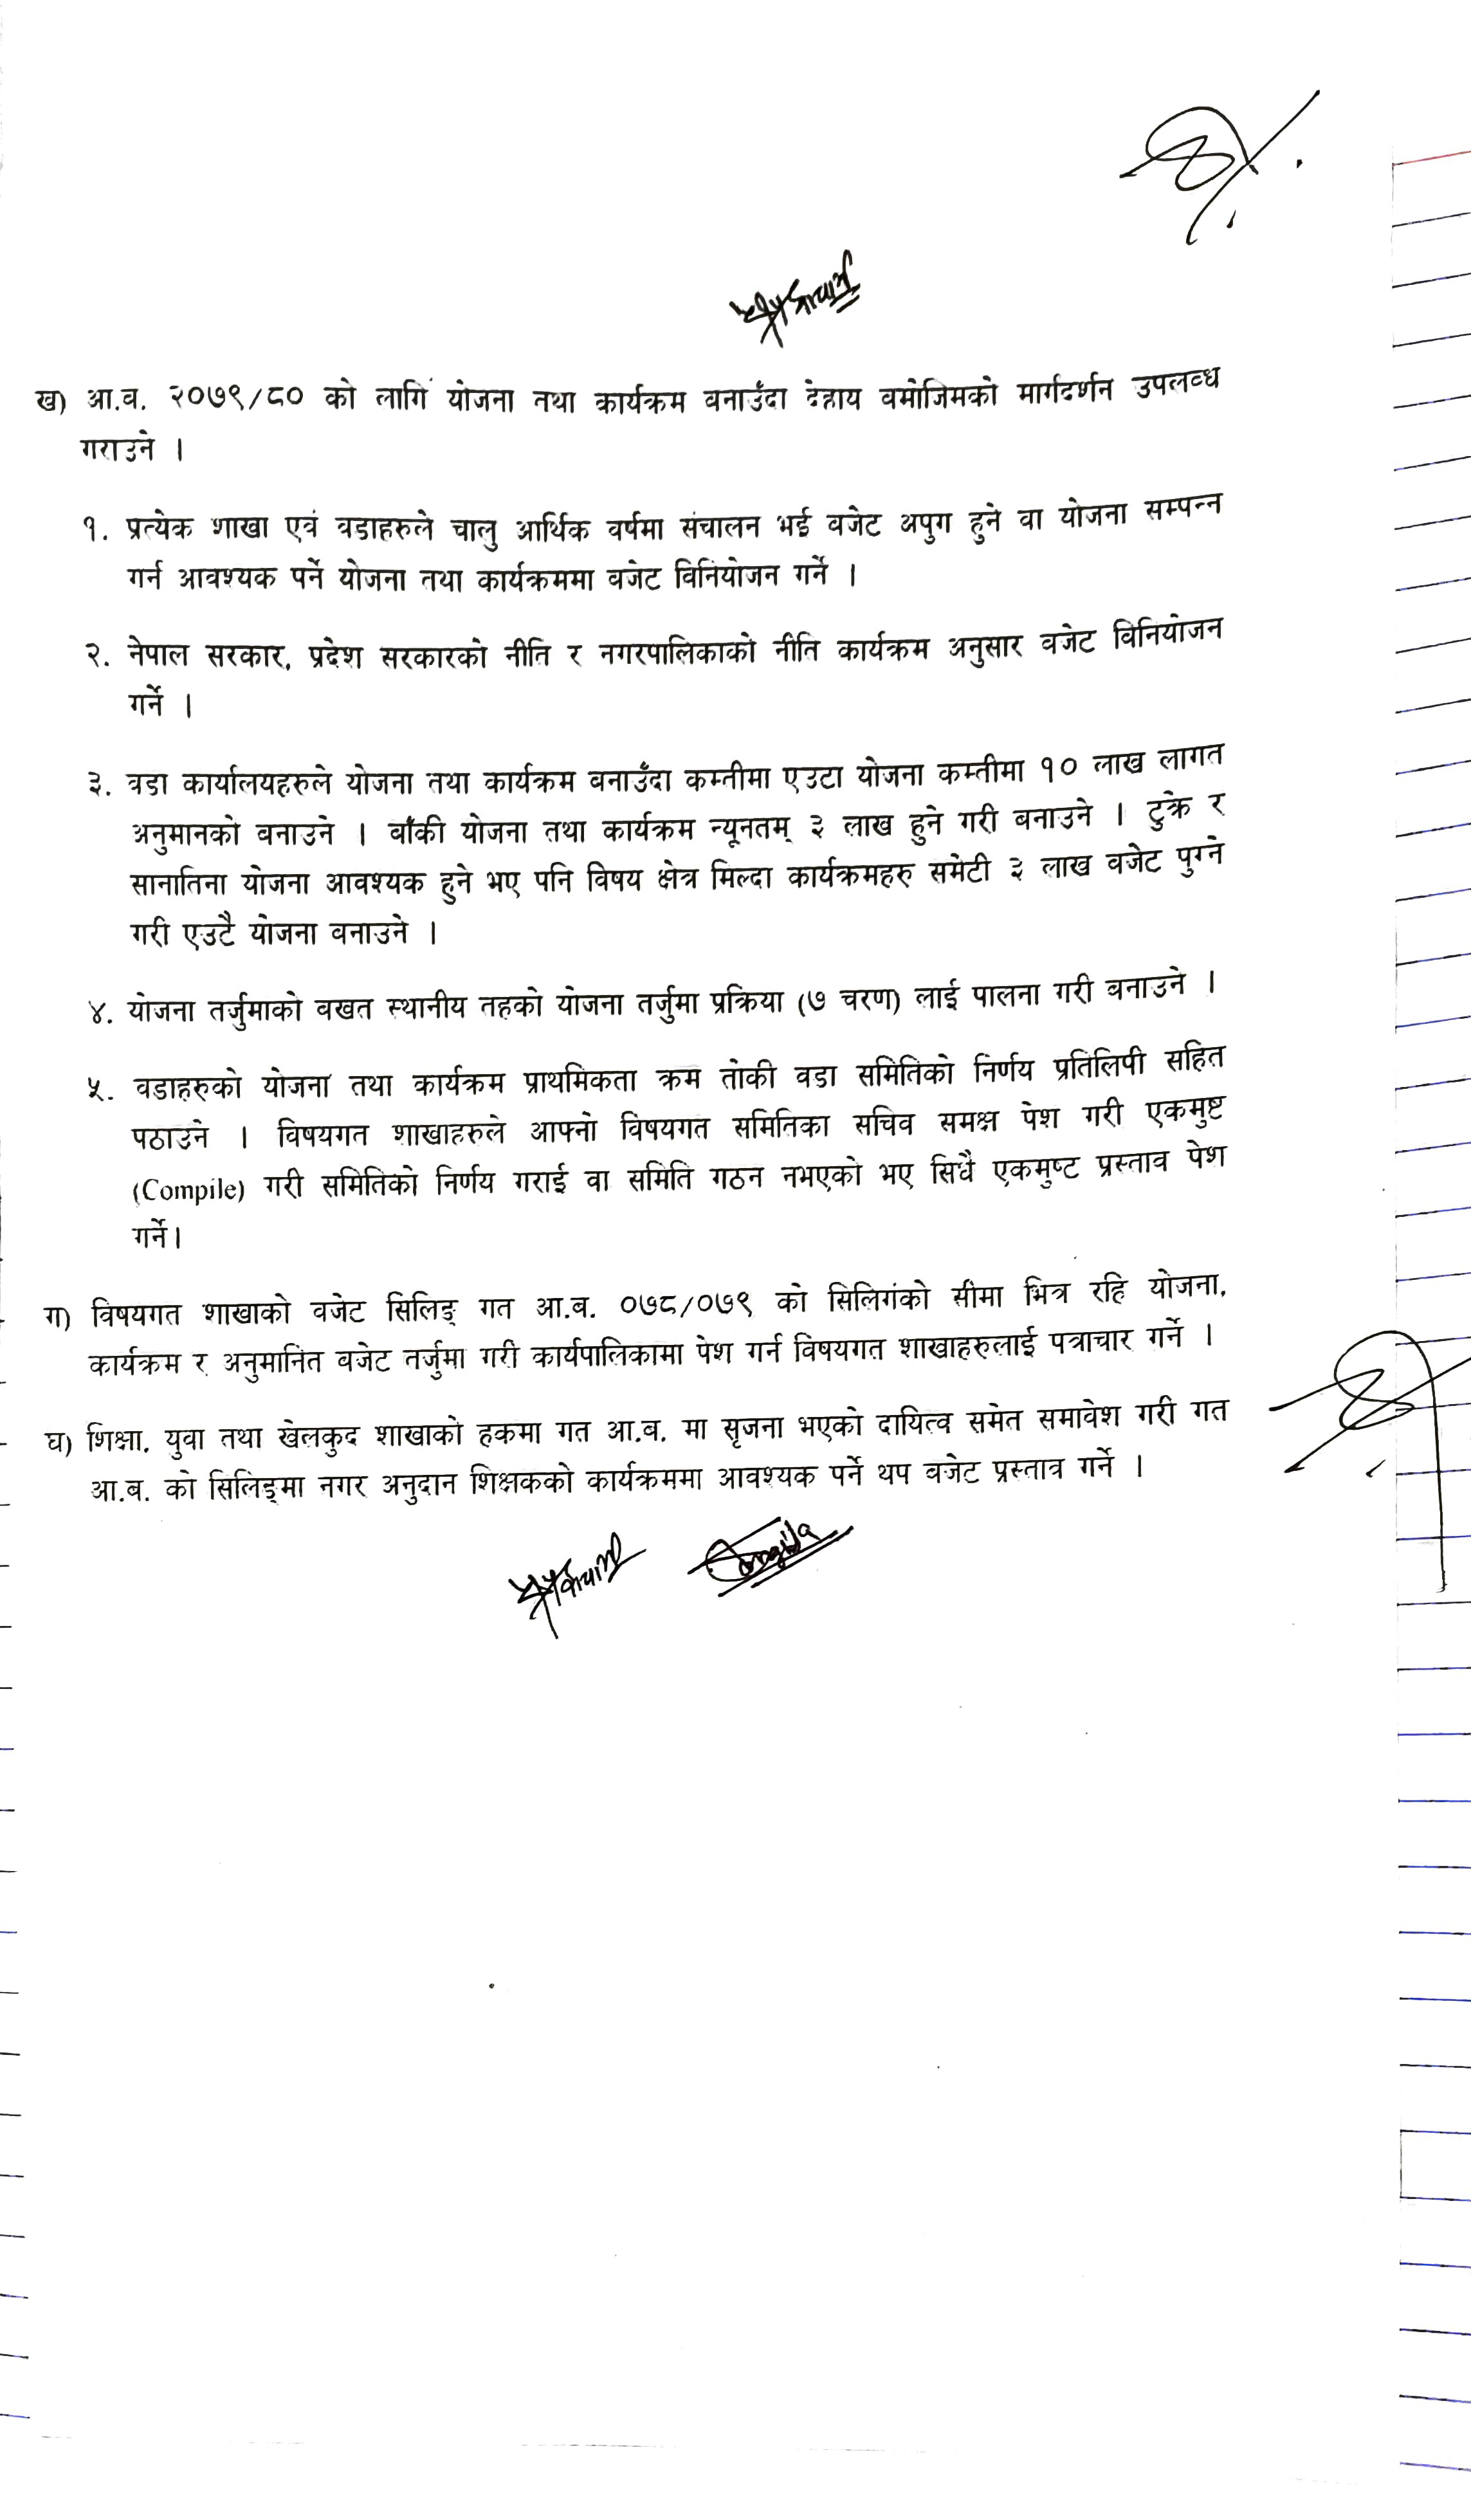 ख) आ.व. २०७९/८० को लागि योजना तथा कार्यक्रम बनाउँदा देहाय वमोजिमको मार्गदर्शन उपलब्ध
गराउने ।
१. प्रत्येक शाखा एवं वडाहरुले चालु आर्थिक वर्षमा संचालन भई बजेट अपुग हुने वा योजना सम्पन्न
गर्न आवश्यक पर्ने योजना तथा कार्यक्रममा बजेट विनियोजन गर्ने ।
२. नेपाल सरकार, प्रदेश सरकारको नीति र नगरपालिकाको नीति कार्यक्रम अनुसार बजेट विनियोजन
गर्ने ।
३. वडा कार्यालयहरुले योजना तथा कार्यक्रम बनाउँदा कम्तीमा एउटा योजना कम्तीमा १० लाख लागत
अनुमानको बनाउने । बाँकी योजना तथा कार्यक्रम न्यूनतम् ३ लाख हुने गरी बनाउने । टुक्रे र
सानातिना योजना आवश्यक हुने भए पनि विषय क्षेत्र मिल्दा कार्यक्रमहरु समेटी ३ लाख बजेट पुग्ने
गरी एउटै योजना बनाउने ।
४. योजना तर्जुमाको वखत स्थानीय तहको योजना तर्जुमा प्रक्रिया (७ चरण) लाई पालना गरी बनाउने ।
५. वडाहरुको योजना तथा कार्यक्रम प्राथमिकता क्रम तोकी वडा समितिको निर्णय प्रतिलिपी सहित
पठाउने । विषयगत शाखाहरुले आफ्नो विषयगत समितिका सचिव समक्ष पेश गरी एकमुष्ट
(Compile) गरी समितिको निर्णय गराई वा समिति गठन नभएको भए सिधै एकमुष्ट प्रस्ताव पेश
गर्ने।
ग) विषयगत शाखाको बजेट सिलिङ् गत आ.ब. ०७८/०७९ को सिलिगंको सीमा भित्र रहि योजना,
कार्यक्रम र अनुमानित बजेट तर्जुमा गरी कार्यपालिकामा पेश गर्न विषयगत शाखाहरुलाई पत्राचार गर्ने ।
घ) शिक्षा, युवा तथा खेलकुद शाखाको हकमा गत आ.ब. मा सृजना भएको दायित्व समेत समावेश गरी गत
आ.ब. को सिलिङ्मा नगर अनुदान शिक्षकको कार्यक्रममा आवश्यक पर्ने थप बजेट प्रस्ताव गर्ने ।